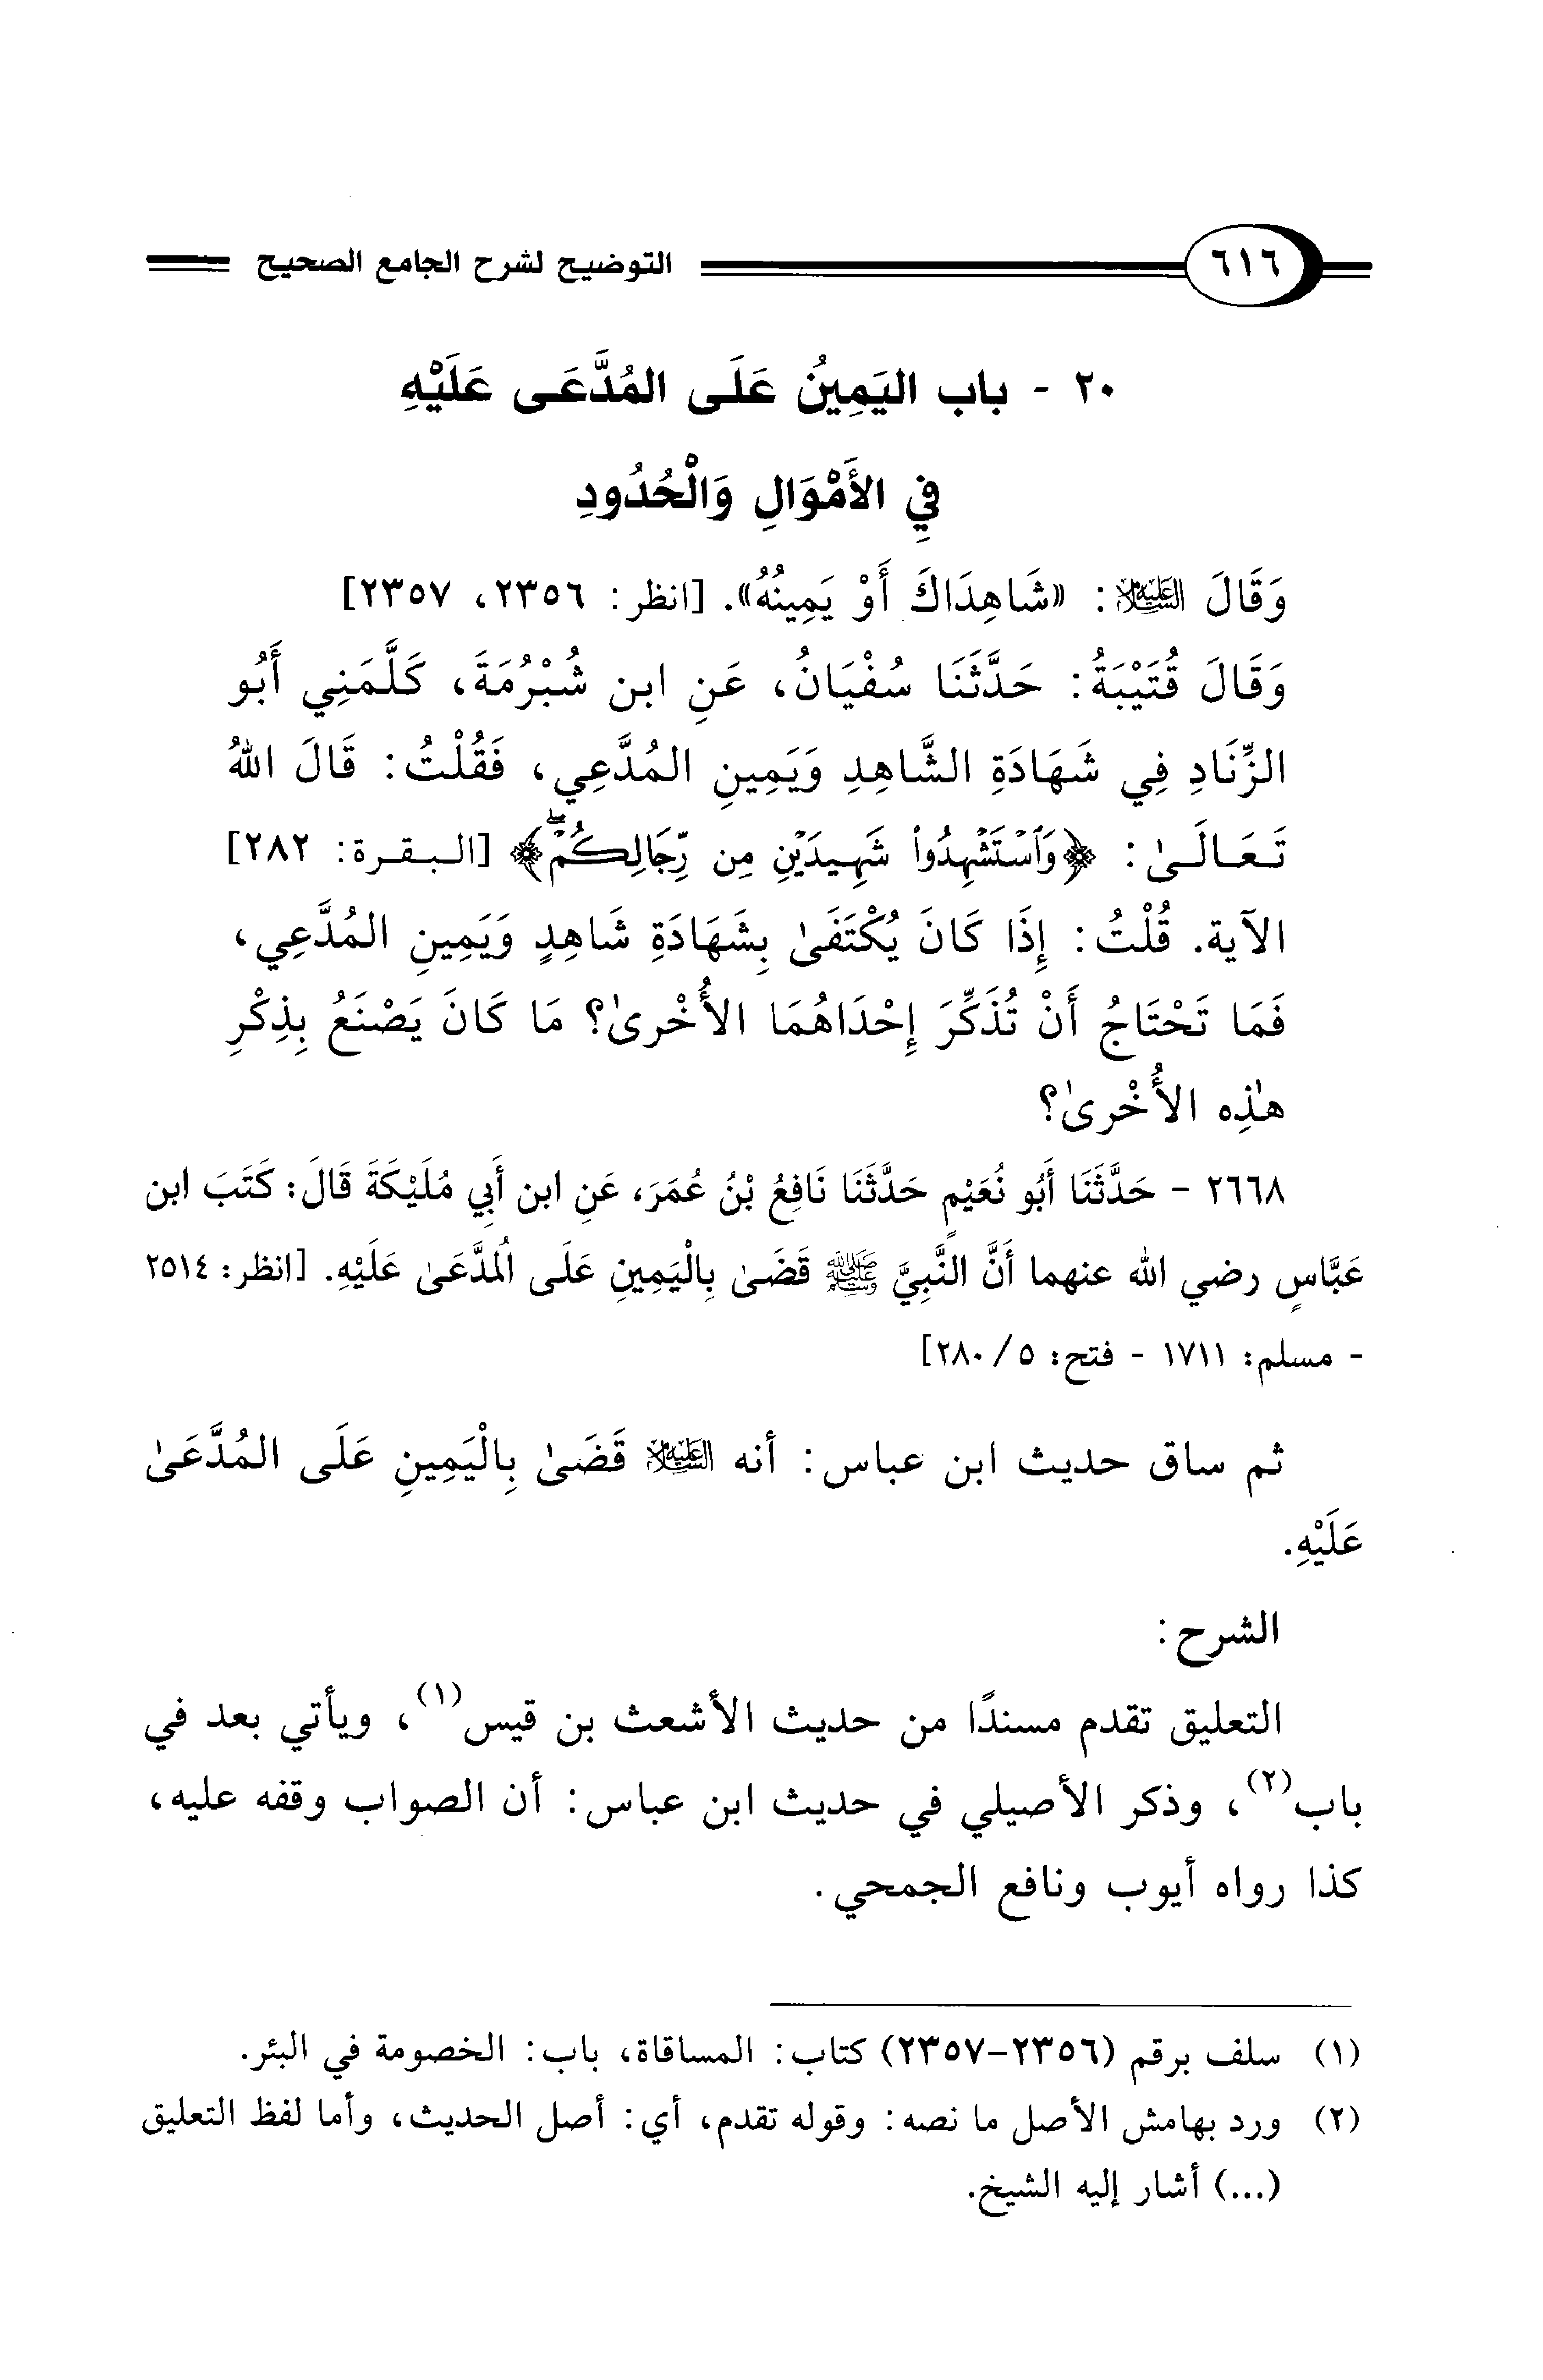 ٦١٦ التوضيح لشرح الجامع الصحيح
٢٠ - باب اليَمِينُ عَلَى المُدَّعَى عَلَيْهِ
فِي الأَمْوَالِ وَالْحُدُودِ
وَقَالَ عليه السلام: «شَاهِدَاكَ أَوْ يَمِينُهُ». [انظر: ٢٣٥٦، ٢٣٥٧]
وَقَالَ قُتَيْبَةُ: حَدَّثَنَا سُفْيَانُ، عَنِ ابن شُبْرُمَةَ، كَلَّمَنِي أَبُو
الزِّنَادِ فِي شَهَادَةِ الشَّاهِدِ وَيَمِينِ المُدَّعِي، فَقُلْتُ: قَالَ اللهُ
تَعَالَىٰ: ﴿وَٱسْتَشْهِدُوا۟ شَهِيدَيْنِ مِن رِّجَالِكُمْ ۖ﴾ [البقرة: ٢٨٢]
الآية. قُلْتُ: إِذَا كَانَ يُكْتَفَىٰ بِشَهَادَةِ شَاهِدٍ وَيَمِينِ المُدَّعِي،
فَمَا تَحْتَاجُ أَنْ تُذَكِّرَ إِحْدَاهُمَا الأُخْرىٰ؟ مَا كَانَ يَصْنَعُ بِذِكْرِ
هٰذِه الأُخْرىٰ؟
٢٦٦٨ - حَدَّثَنَا أَبُو نُعَيْمٍ حَدَّثَنَا نَافِعُ بْنُ عُمَرَ، عَنِ ابن أَبِي مُلَيْكَةَ قَالَ: كَتَبَ ابن
عَبَّاسٍ رضي الله عنهما أَنَّ النَّبِيَّ ﷺ قَضَىٰ بِالْيَمِينِ عَلَى اُلمُدَّعَىٰ عَلَيْهِ. [انظر: ٢٥١٤
- مسلم: ١٧١١ - فتح: ٥/ ٢٨٠]
ثم ساق حديث ابن عباس: أنه عليه السلام قَضَىٰ بِالْيَمِينِ عَلَى المُدَّعَىٰ
عَلَيْهِ.
الشرح:
التعليق تقدم مسندًا من حديث الأشعث بن قيس(١)، ويأتي بعد في
باب(٢)، وذكر الأصيلي في حديث ابن عباس: أن الصواب وقفه عليه،
كذا رواه أيوب ونافع الجمحي.
(١) سلف برقم (٢٣٥٦-٢٣٥٧) كتاب: المساقاة، باب: الخصومة في البئر.
(٢) ورد بهامش الأصل ما نصه: وقوله تقدم، أي: أصل الحديث، وأما لفظ التعليق
(...) أشار إليه الشيخ.